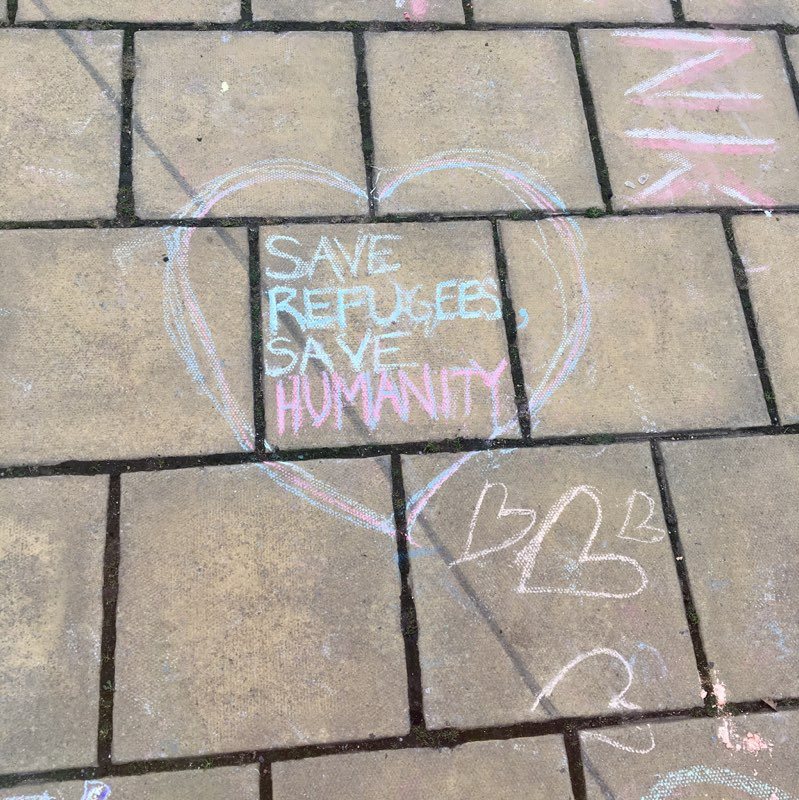 SAVE
REFUGEES,
SAVE
HUMANITY